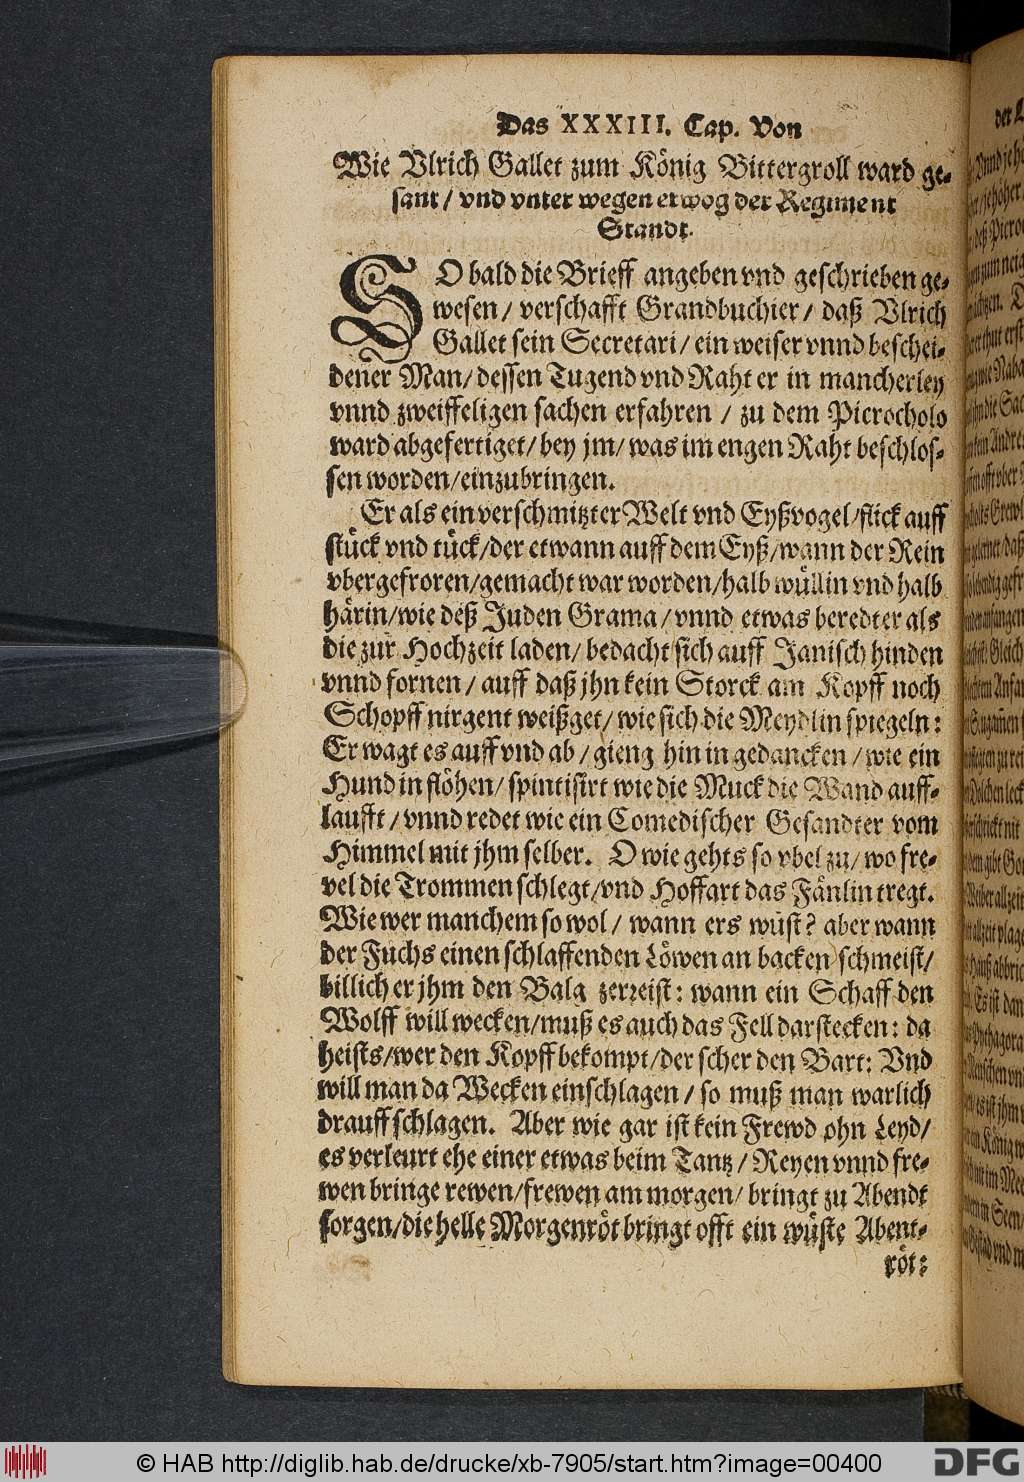 Das XXXIII. Cap. Von
Wie Vlrich Gallet zum König Bittergroll ward ge-
sant / vnd vnter wegen erwog der Regiment
Standt.
SO bald die Brieff angeben vnd geschrieben ge-
wesen / verschafft Grandbuchier / daß Vlrich
Gallet sein Secretari / ein weiser vnnd beschei-
dener Man / dessen Tugend vnd Raht er in mancherley
vnnd zweiffeligen sachen erfahren / zu dem Picrocholo
ward abgefertiget / bey jm / was im engen Raht beschlos-
sen worden / einzubringen.
Er als ein verschmitzter Welt vnd Eyßvogel / flick auff
stück vnd tück / der etwann auff dem Eyß / wann der Rein
vbergefroren / gemacht war worden / halb wüllin vnd halb
härin / wie deß Juden Grama / vnnd etwas beredter als
die zur Hochzeit laden / bedacht sich auff Janisch hinden
vnnd fornen / auff daß jhn kein Storck am Kopff noch
Schopff nirgent weißget / wie sich die Meydlin spiegeln:
Er wagt es auff vnd ab / gieng hin in gedancken / wie ein
Hund in flöhen / spintisirt wie die Muck die Wand auff-
laufft / vnnd redet wie ein Comedischer Gesandter vom
Himmel mit jhm selber. O wie gehts so vbel zu / wo fre-
vel die Trommen schlegt / vnd Hoffart das Fänlin tregt.
Wie wer manchem so wol / wann ers wüst? aber wann
der Fuchs einen schlaffenden Löwen an backen schmeist /
billich er jhm den Balg zerreist: wann ein Schaff den
Wolff will wecken / muß es auch das Fell darstecken: da
heists / wer den Kopff bekompt / der scher den Bart: Vnd
will man da Wecken einschlagen / so muß man warlich
drauff schlagen. Aber wie gar ist kein Frewd ohn Leyd /
es verleurt ehe einer etwas beim Tantz / Reyen vnnd fre-
wen bringe rewen / frewen am morgen / bringt zu Abendt
sorgen / die helle Morgenröt bringt offt ein wüste Abent-
röt:
© HAB http://diglib.hab.de/drucke/xb-7905/start.htm?image=00400
DFG